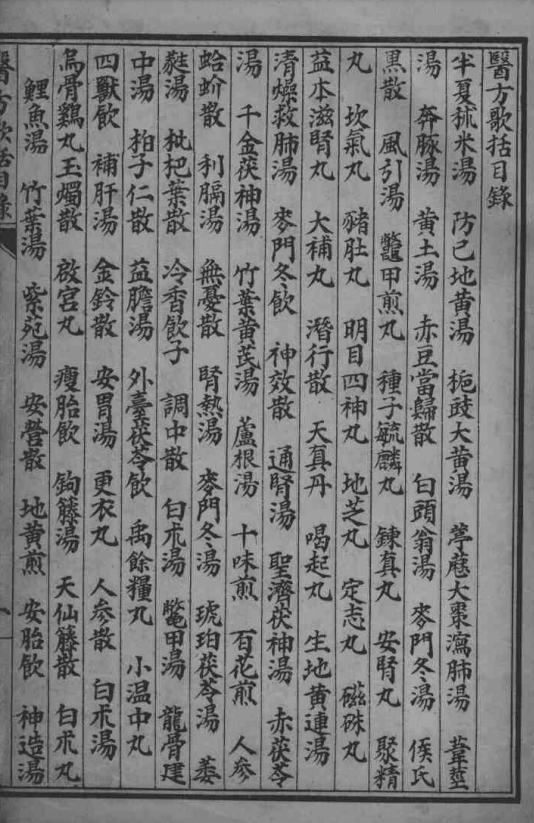 醫方歌括目錄
半夏秫米湯 防己地黄湯 梔豉大黄湯 葶藶大棗瀉肺湯 葦莖
湯 奔豚湯 黄土湯 赤豆當歸散 白頭翁湯 麥門冬湯 侯氏
黒散 風引湯 鼈甲煎丸 種子毓麟丸 鍊真丸 安腎丸 聚精
丸 坎氣丸 豬肚丸 明目四神丸 地芝丸 定志丸 磁硃丸
益本滋腎丸 大補丸 潛行散 天真丹 喝起丸 生地黄連湯
清燥救肺湯 麥門冬飲 神效散 通腎湯 聖濟茯神湯 赤茯苓
湯 千金茯神湯 竹葉黄芪湯 蘆根湯 十味煎 百花煎 人參
蛤蚧散 利膈湯 無憂散 腎熱湯 麥門冬湯 琥珀茯苓湯 萎
蕤湯 枇杷葉散 冷香飲子 調中散 白朮湯 鼈甲湯 龍骨建
中湯 柏子仁散 益膽湯 外臺茯苓飲 禹餘糧丸 小温中丸
四獸飲 補肝湯 金鈴散 安胃湯 更衣丸 人參散 白朮湯
烏骨鷄丸 玉燭散 啟宮丸 瘦胎飲 鉤籐湯 天仙籐散 白朮丸
鯉魚湯 竹葉湯 紫菀湯 安營散 地黄煎 安胎飲 神造湯
醫方歌括目錄